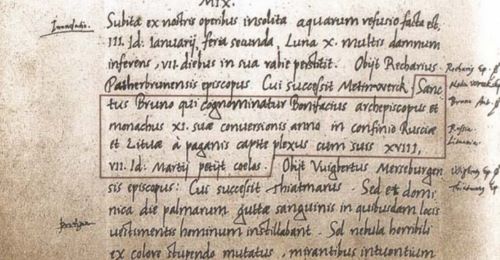 MIX.
Inundatio.
Subita ex nostris operibus insolita aquarum refusio facta est,
III. Id: Ianuarij, feria secunda, Luna X. multis damnum
inferens, VII. diebus in sua rabie perstitit. Obijt Recharius
Patherbrunensis episcopus. Cui successit Metinwerck. Sanc
tus Bruno qui cognominatur Bonifacius archepiscopus et
monachus XI. suae conversionis anno in confinio Rusciae
et Lituae à paganis capite plexus cum suis XVIII,
VII. Id: Martij petijt coelos. Obijt Vuigbertus Merseburgen
sis episcopus: Cui successit Thiatmarus. Sed et domi
nica die palmarum guttae sanguinis in quibusdam locis
vestimentis hominum instillabant. Sol nebula horribili
ex colore stupendo mutatus, mirantibus intuentium
Bruno
Russia.
Lituania.